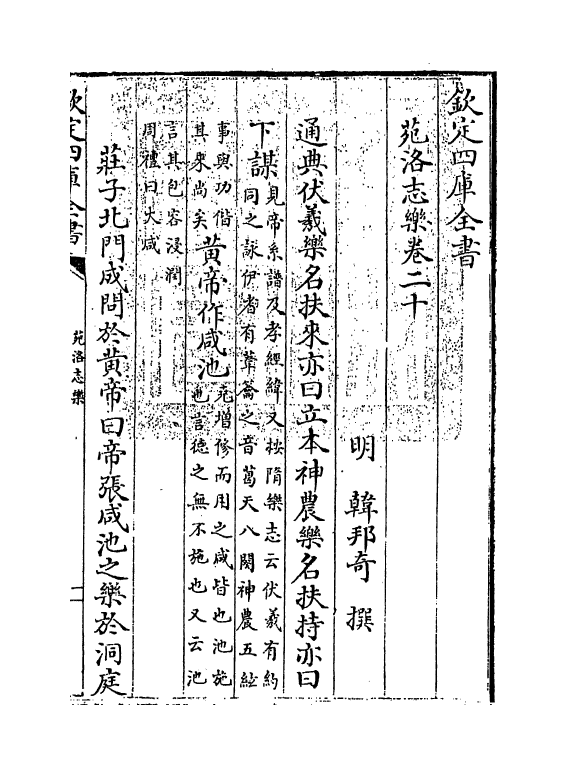 欽定四庫全書
苑洛志樂卷二十
明 韓邦奇 撰
通典伏羲樂名扶來亦曰立本神農樂名扶持亦曰
下謀見帝系譜及孝經緯又按隋樂志云伏羲有約
同之詠伊耆有葦籥之音葛天八闋神農五絃
事與功偕
其來尚矣
黄帝作咸池堯增修而用之咸皆也池施
也言德之無不施也又云池
言其包容浸潤
周禮曰大咸
莊子北門成問於黄帝曰帝張咸池之樂於洞庭
欽定四庫全書
苑洛志樂
一